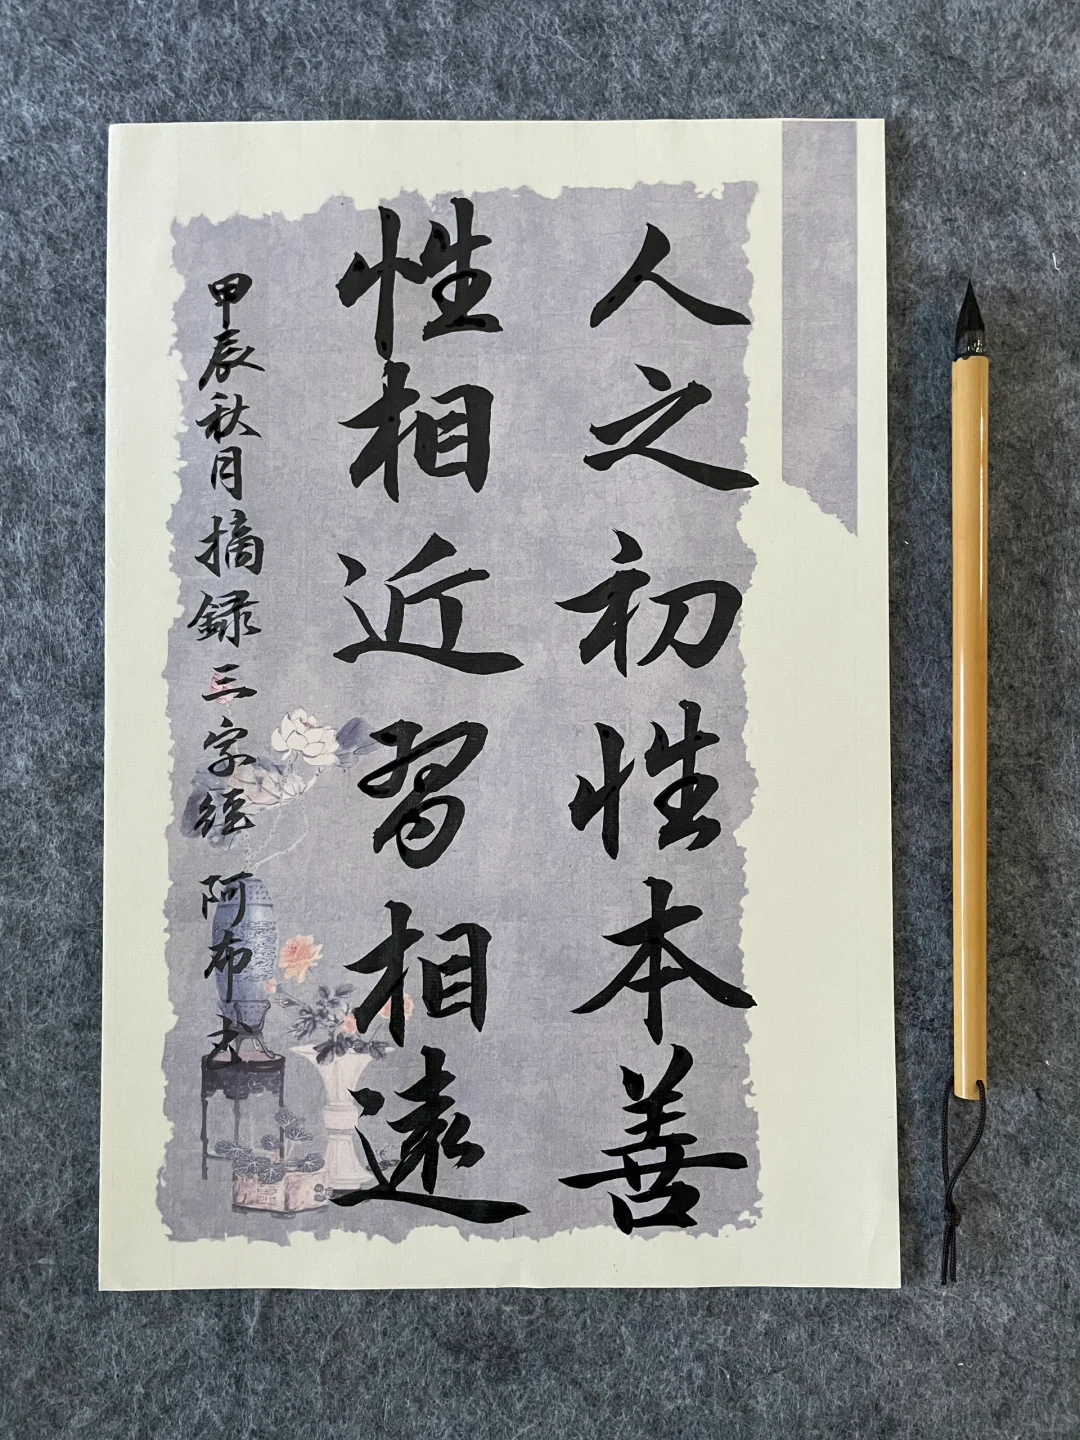 人之初性本善
性相近習相遠
甲辰秋月摘録三字經阿布书